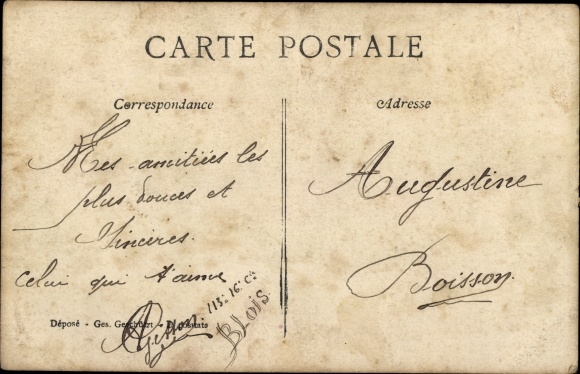 CARTE POSTALE
Correspondance
Adresse
Mes amitiées les
plus douces et
Sincères.
celui qui t'aime
Augustine
Boisson
Déposé - Ges. Geschützt -
113: 16: Cie
BLOIS